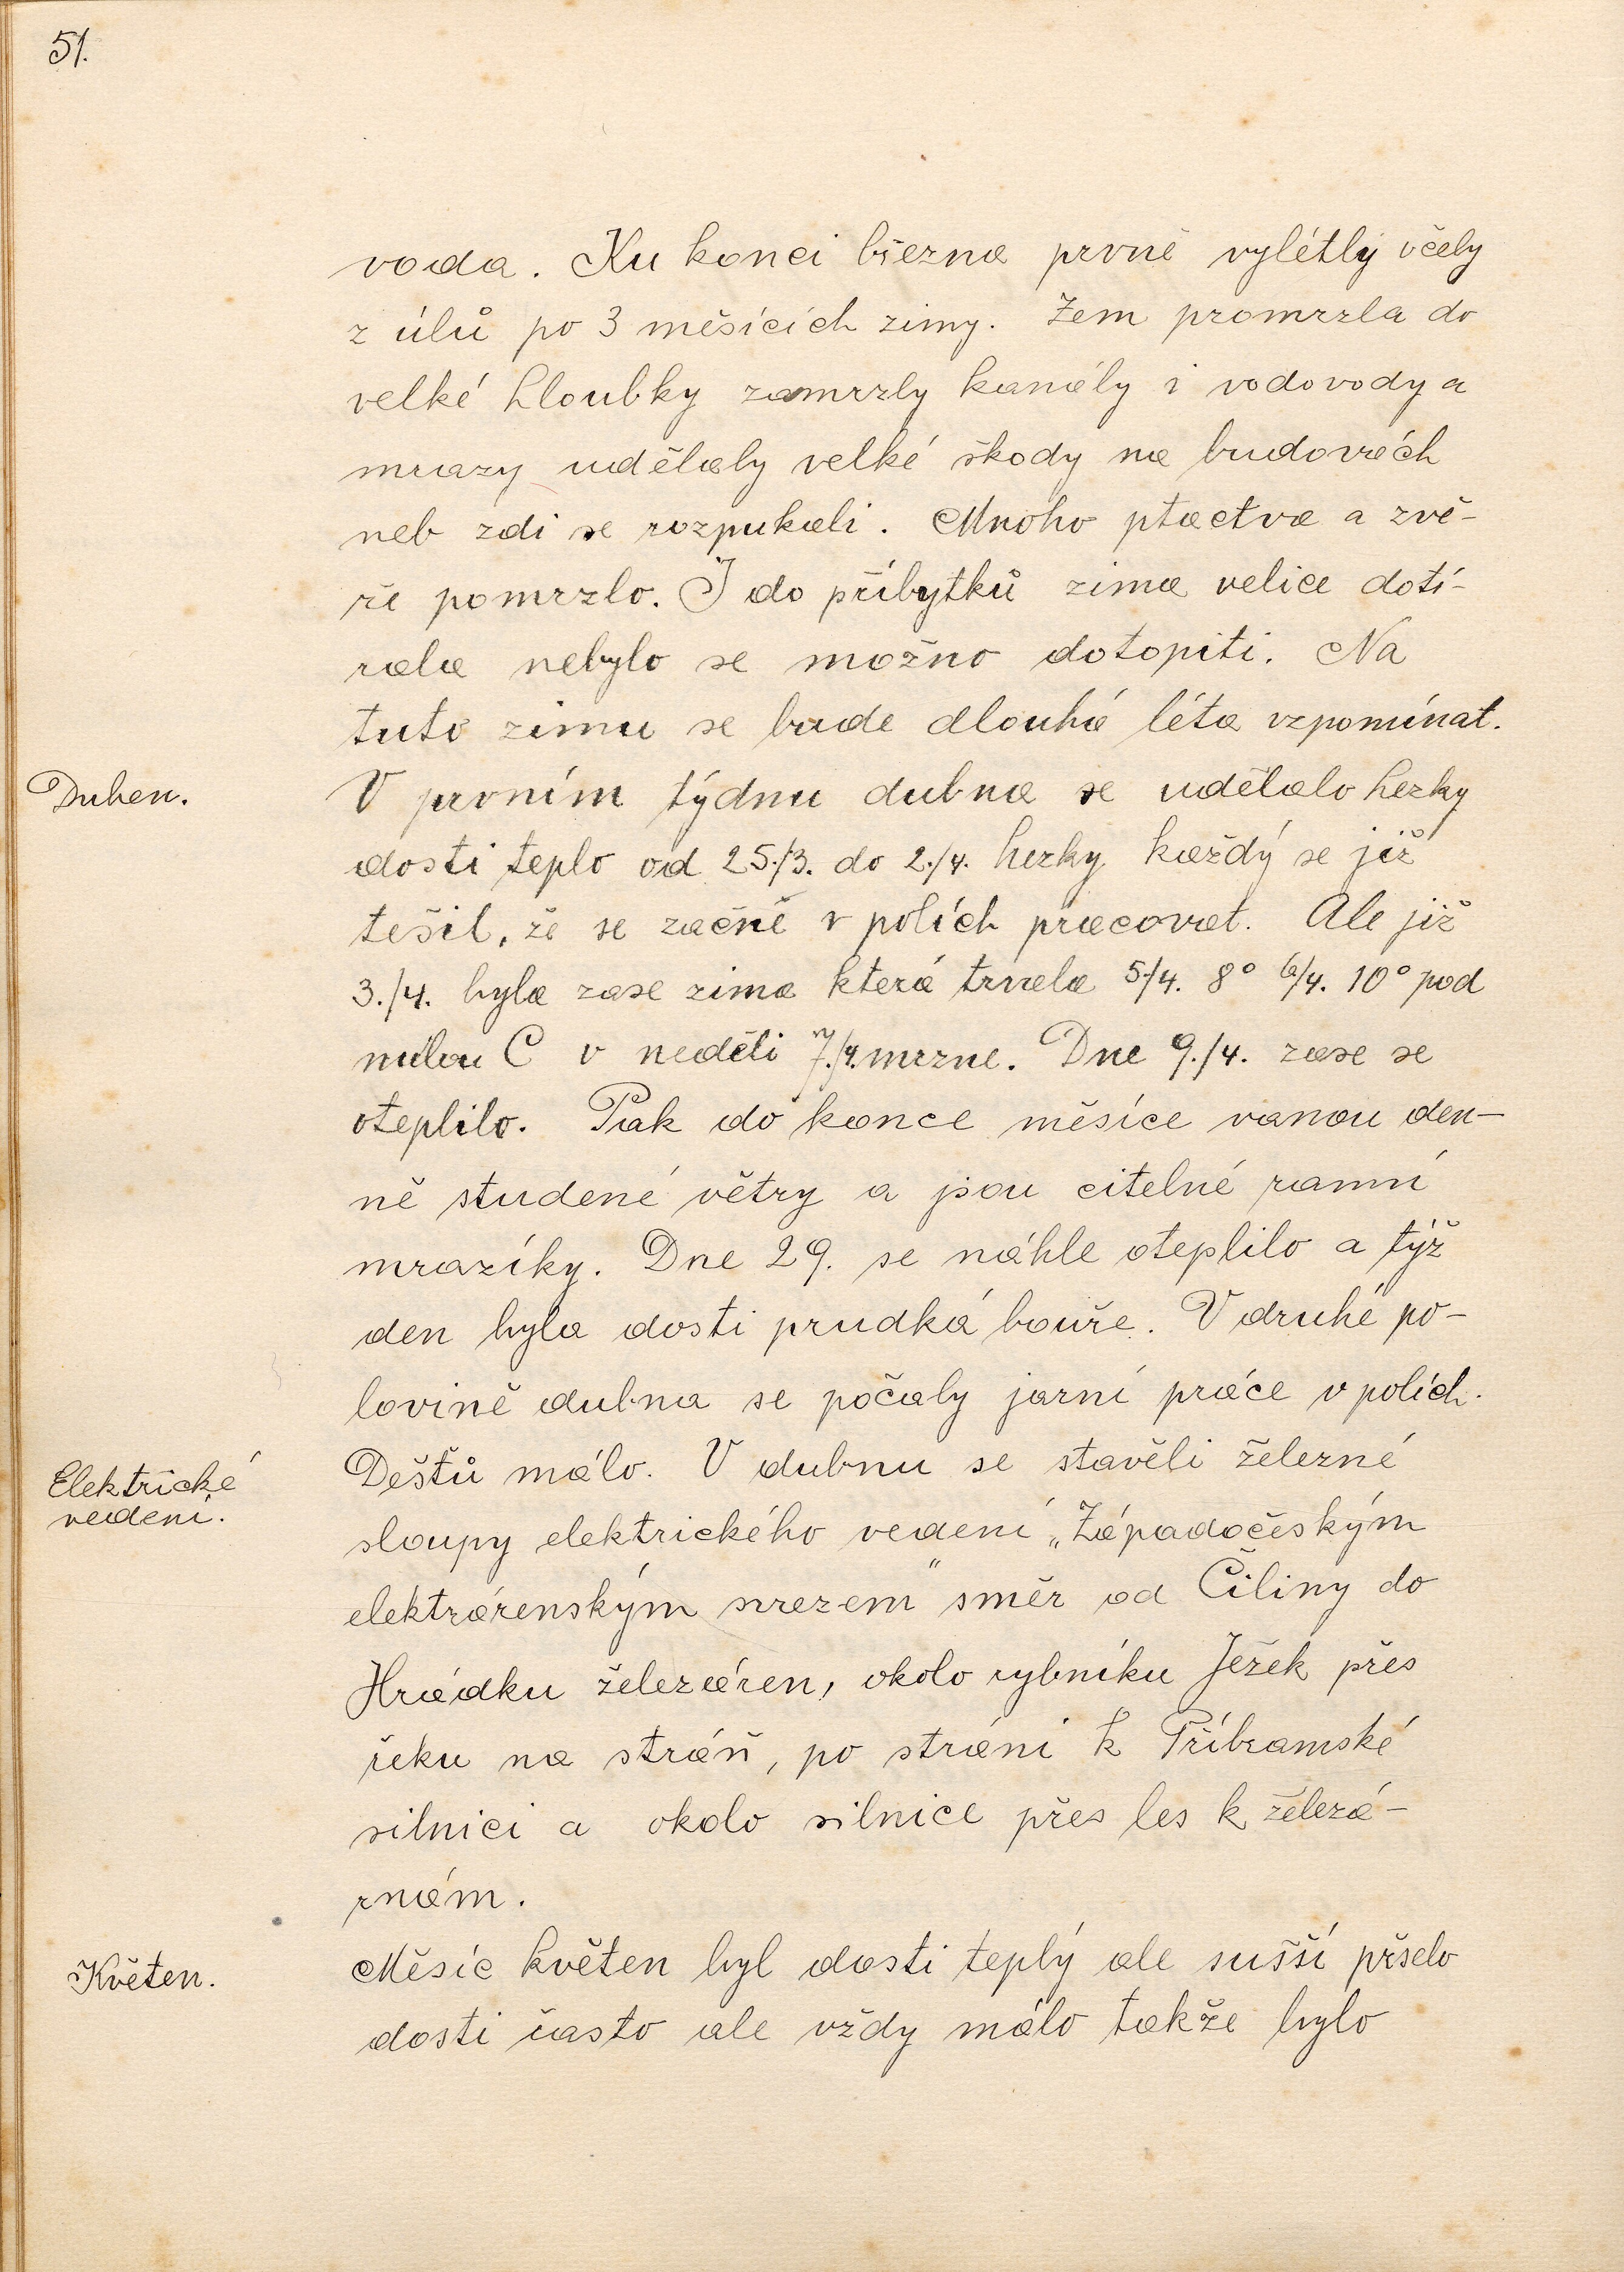 51.
voda. Ku konci března prvně vylétly včely
z úlů po 3 měsících zimy. Zem promrzla do
velké hloubky zamrzly kanály i vodovody a
mrazy udělaly velké škody na budovách
neb zdi se rozpukali. Mnoho ptactva a zvě-
ře pomrzlo. I do příbytků zima velice dotí-
rala nebylo se možno dotopiti. Na
tuto zimu se bude dlouhá léta vzpomínat.
Duben.
V prvním týdnu dubna se udělalo hezky
dosti teplo od 25./3. do 2./4. hezky každý se již
těšil, že se začně v polích pracovat. Ale již
3./4. byla zase zima která trvala 5/4. 8° 6/4. 10° pod
nulou C v neděli 7./4. mrzne. Dne 9./4. zase se
oteplilo. Pak do konce měsíce vanou den-
ně studené větry a jsou citelné ranní
mrazíky. Dne 29. se náhle oteplilo a týž
den byla dosti prudká bouře. V druhé po-
lovině dubna se počaly jarní práce v polích.
Elektrické
vedení.
Deštů málo. V dubnu se stavěli železné
sloupy elektrického vedení „Západočeským
elektrárenským svazem" směr od Čiliny do
Hrádku železáren, okolo rybníku Ježek přes
řeku na stráň, po stráni k Příbramské
silnici a okolo silnice přes les k železá-
rnám.
Květen.
Měsíc květen byl dosti teplý ale sušší pršelo
dosti často ale vždy málo takže bylo